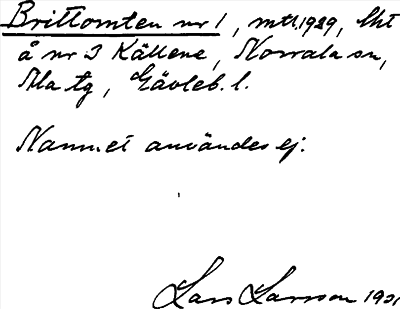 Brittomten nr 1, mtl. 1939, lht
å nr 3 Källene, Norrala sn,
Ala tg, Gävleb. l.
Namnet användes ej.
Lars Larsson 1931